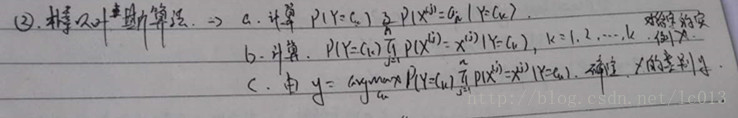 ②. 朴素贝叶斯算法. → a. 计算 P(Y=Cₖ) 及 P(X⁽ʲ⁾=aⱼ|Y=Cₖ).
b. 计算. P(Y=Cₖ)∏ⱼ₌₁ⁿ P(X⁽ʲ⁾=x⁽ʲ⁾|Y=Cₖ), k=1,2,...,k 对给定的实例x.
c. 由 y = argmax_cₖ P(Y=Cₖ)∏ⱼ₌₁ⁿ P(X⁽ʲ⁾=x⁽ʲ⁾|Y=Cₖ). 确定 x的类别y.
http://blog.csdn.net/lc013